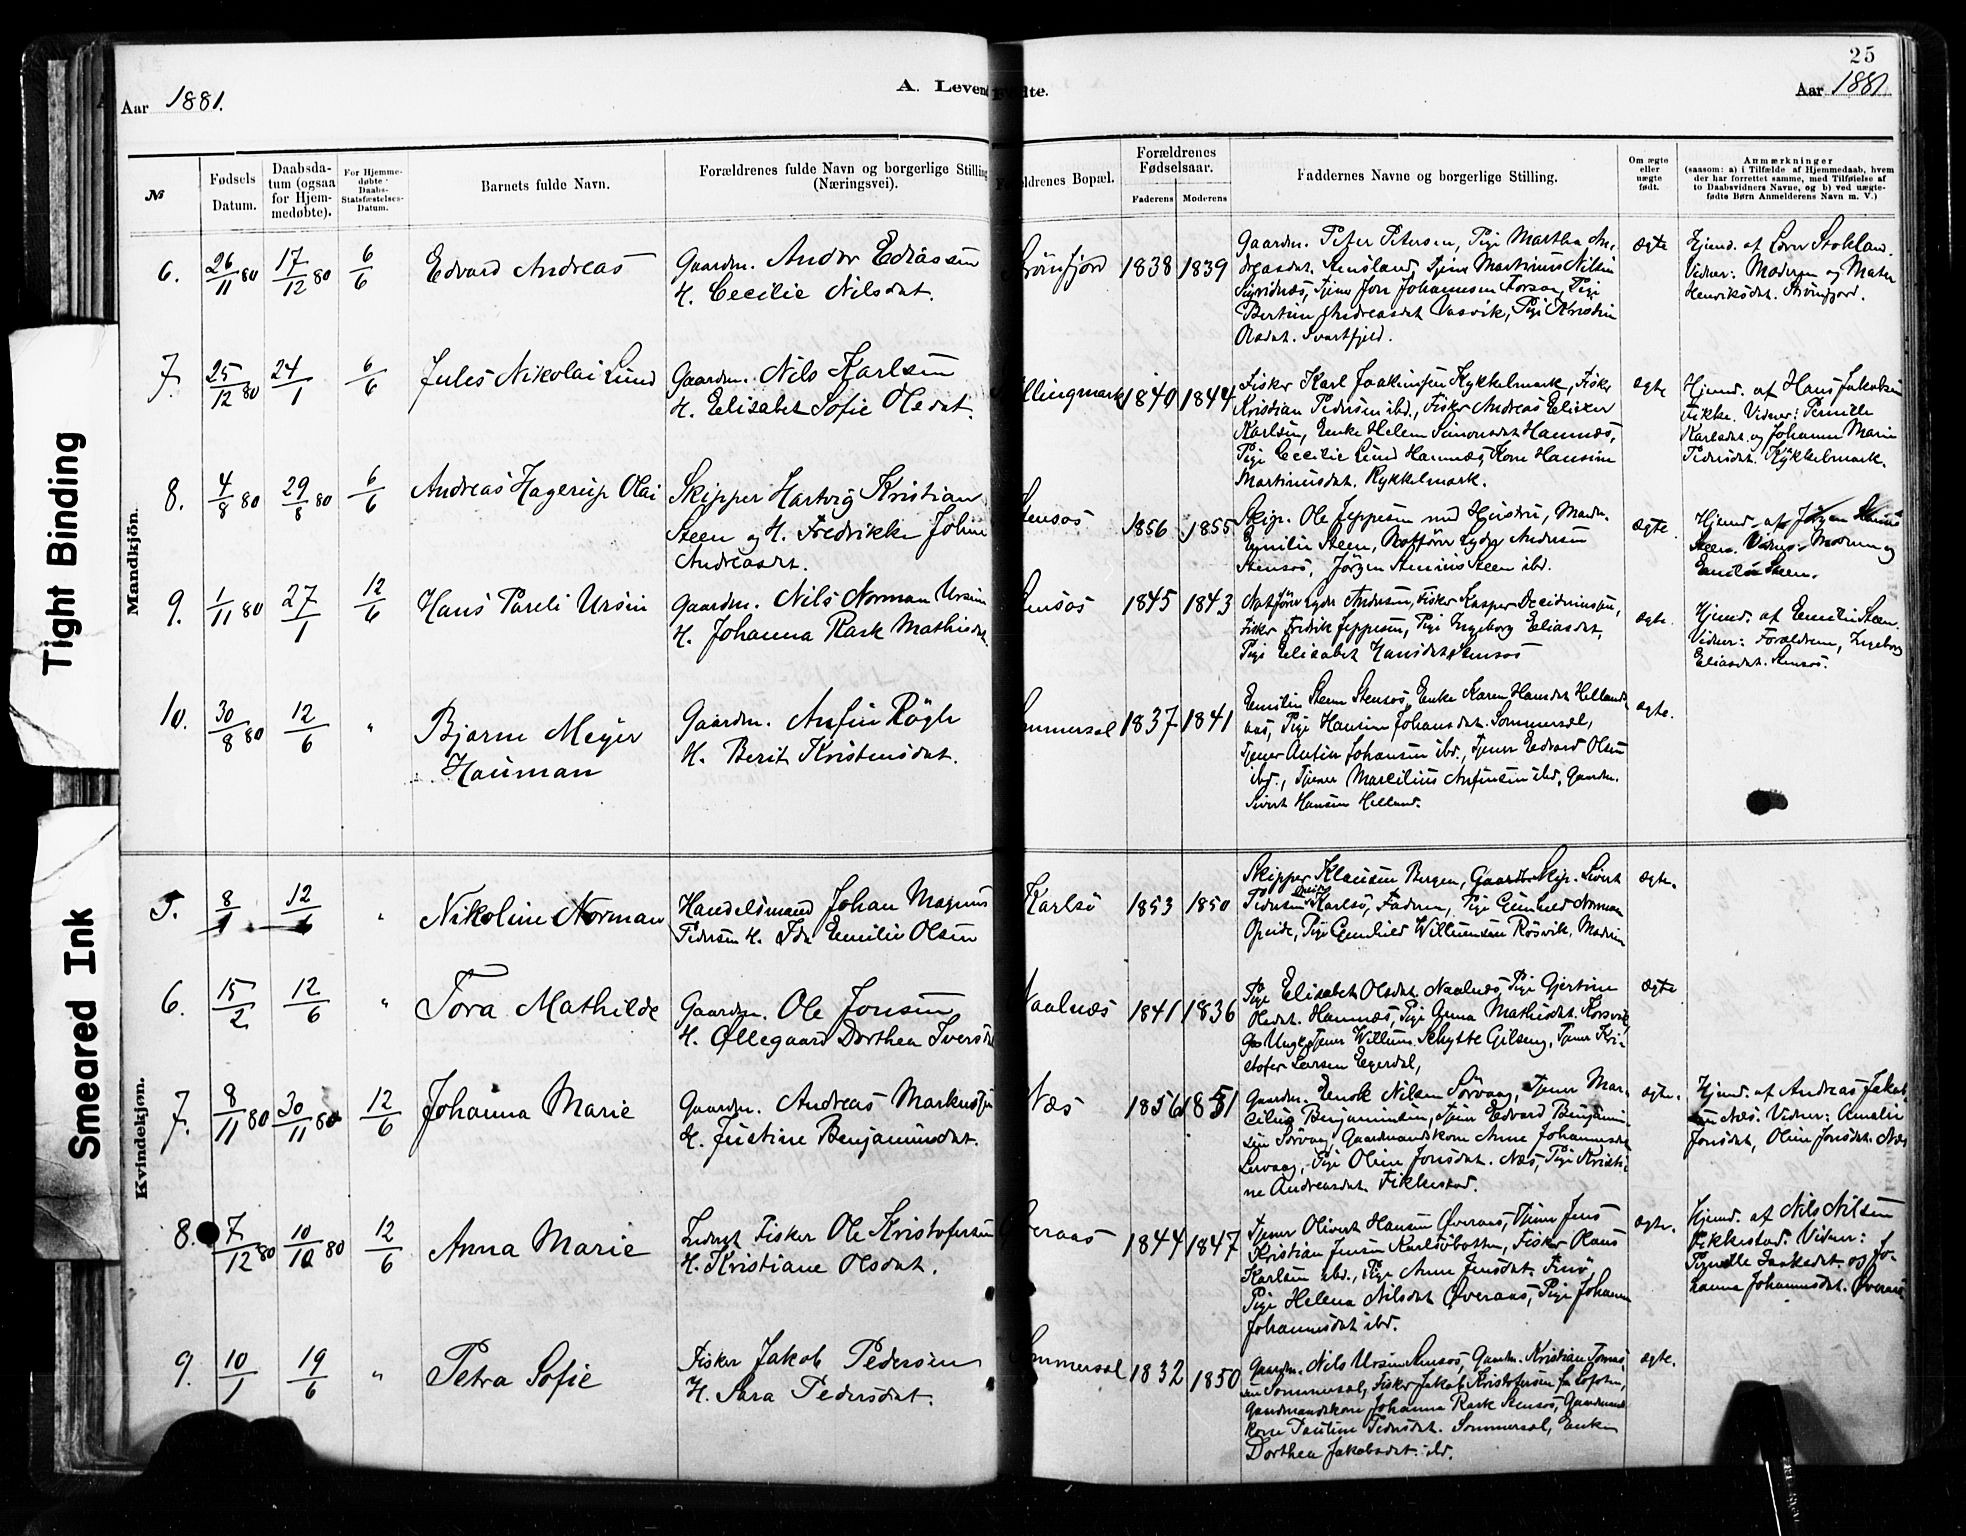 25
Aar 1881.
A. Levendefødte.
Aar 1881
№
Fødsels Datum.
Daabsdatum (ogsaa for Hjemmedøbte).
For Hjemmedøbte Daabs-Statsfæstelses-Datum.
Barnets fulde Navn.
Forældrenes fulde Navn og borgerlige Stilling (Næringsvei).
ldrenes Bopæl.
Forældrenes Fødselsaar.
Faderens
Moderens
Faddernes Navne og borgerlige Stilling.
Om ægte eller uægte født.
Anmærkninger
(saasom: a) i Tilfælde af Hjemmedaab, hvem
der har forrettet samme, med Tilføielse af
to Daabsvidners Navne, og b) ved uægte-
fødte Børn Anmelderens Navn m. V.)
Tight Binding
Smeared Ink
Mandkjøn.
6. 26/11 80 17/12 80 6/6 Edvard Andreas
Gaardm. Andor Ediassen
H. Cecilie Nilsdat.
1838 1839
Gaardm. Peter Petersen, Pige Martha An-
dreasdat. Tjener Martinus Nilsen
Tjener Jon Johannesen Pige
Andreasdat. Pige Kristin
Olsdat. Svartfjeld.
ægte
Hjemd. af
Vidner: Moderen og
Henriksdat.
7. 25/12 80 24/1 6/6 Jules Nikolai Lund
Gaardm. Nils Karlsen
H. Elisabet Sofie Olsdat.
llingmark 1840 1844
Fisker Karl Joakimsen Kykkelmark, Fisker
Kristian Pedersen ibd., Fisker Andreas
Karlsen, Enke Helene Simonsdat Hamnæs,
Pige Cecilie Lund Hamnæs, Kone Hansine
Martinusdat. Kykkelmark.
ægte
Hjemd. af Hans Jakobsen
Vidner: Pernille
Karlsdat. og Johanne Marie
Pedersdat. Kykkelmark.
8. 4/8 80 29/8 80 6/6 Andreas Hagerup Olai
Skipper Hartvig Kristian
Steen og H. Fredrikke Johne
Andreasdt.
Stensøs 1856 1855
Skip. Ole Jeppesen med Hustru, Madm.
Emilie Steen, Lyder Andersen
Stensøs, Jørgen Steen ibd.
ægte.
Hjemd. af Jørgen
Steen. Vidner: Moderen og
Emilie Steen.
9. 1/11 80 27/1 12/6 Hans Pareli Ursin
Gaardm. Nils Norman Ursin
H. Johanna Rask Mathisdat
ensøs 1845 1843
Lyder Andersen, Fisker Kasper
Fisker Fredrik Jeppesen, Pige Ingeborg Eliasdat,
Pige Elisabet Hansdat Stensøs
ægte.
Hjemd. af Emilie Steen.
Vidner: Forældrene, Ingeborg
Eliasdat. Stensøs.
10. 30/8 80 12/6 " Bjarne Meyer
Hauman
Gaardm. Anfin Røgh
H. Berit Kristensdat.
mmersel 1837 1841
Emilie Steen Stensøs, Enke Karen Hansdat Helland-
aas, Pige Hansine Johansdat. Sommersel,
Tjener Johansen ibd., Tjener Edvard Olsen
ibd., Tjener Marcilius Anfinsen ibd., Gaardm.
Sivert Hansen Helland.
ægte.
Kvindekjøn.
5. 8/1 12/6 " Nikoline Norman
Handelsmand Johan Magnus
Pedersen H. Ida Emilie Olsen
Karlsø 1853 1850
Skipper Klausen Bergen, Skip. Sivert
Pedersen Karlsø, Faderen, Pige Gunhild Norman
Opeide, Pige Gunhild Røsvik, Moderen
ægte.
6. 15/2 12/6 " Tora Mathilde
Gaardm. Ole Jonsen
H. Ollegaard Dorthea Iversdat
Naalnæs 1841 1836
Pige Elisabet Olsdat. Naalnæs, Pige Gjertine
Olsdat. Hamnæs, Pige Anna Mathisdat. Korsvik,
Ungk. Tjener Willum Schytte Tjener Kri-
stofer Larsen
ægte
7. 8/11 80 30/11 80 12/6 Johanna Marie
Gaardm. Andreas Markussen
H. Justine Benjaminsdat.
Næs 1856 1851
Gaardm. Enok Nilsen Sørvaag, Tjener Mar-
cilius Benjaminsen, Tjener Edvard Benjamin-
sen Sørvaag, Gaardmandskone Anne Johannesdat
Pige Oline Jonsdat. Næs, Pige Kristi-
ne Andreasdat. Fikkestad.
ægte.
Hjemd. af Andreas Jakob-
sen Næs. Vidner: Amalie
Jonsdat, Oline Jonsdat. Næs
8. 7/12 80 10/10 80 12/6 Anna Marie
Inderst Fisker Ole Kristofersen
H. Kristiane Olsdat.
veraas 1844 1847
Tjener Olivert Hansen Øveraas, Tjener Jens
Kristian Jensen Karlsøbotten, Fisker Olaus
Karlsen ibd., Pige Anne Jensdat. Finø,
Pige Helena Nilsdat Øveraas, Pige Johanna
Johannesdat ibd.
ægte.
Hjemd. af Nils Nilsen
Fikkestad. Vidner:
Pernille Isaksdat. og Jo-
hanna Johannesdat. Øveraas
9. 10/1 19/6 " Petra Sofie
Fisker Jakob Pedersen
H. Sara Pedersdat.
mmersel 1832 1850
Gaardm. Nils Ursin Stensøs, Gaardm. Kristian Tomas-
sen Sommersel, Fisker Jakob Kristofersen fra Lofoten,
Gaardmandskone Johanna Rask Stensøs, Gaardmands-
kone Pauline Pedersdat. Sommersel, Enken
Dorthea Jakobsdat. ibd.
ægte.